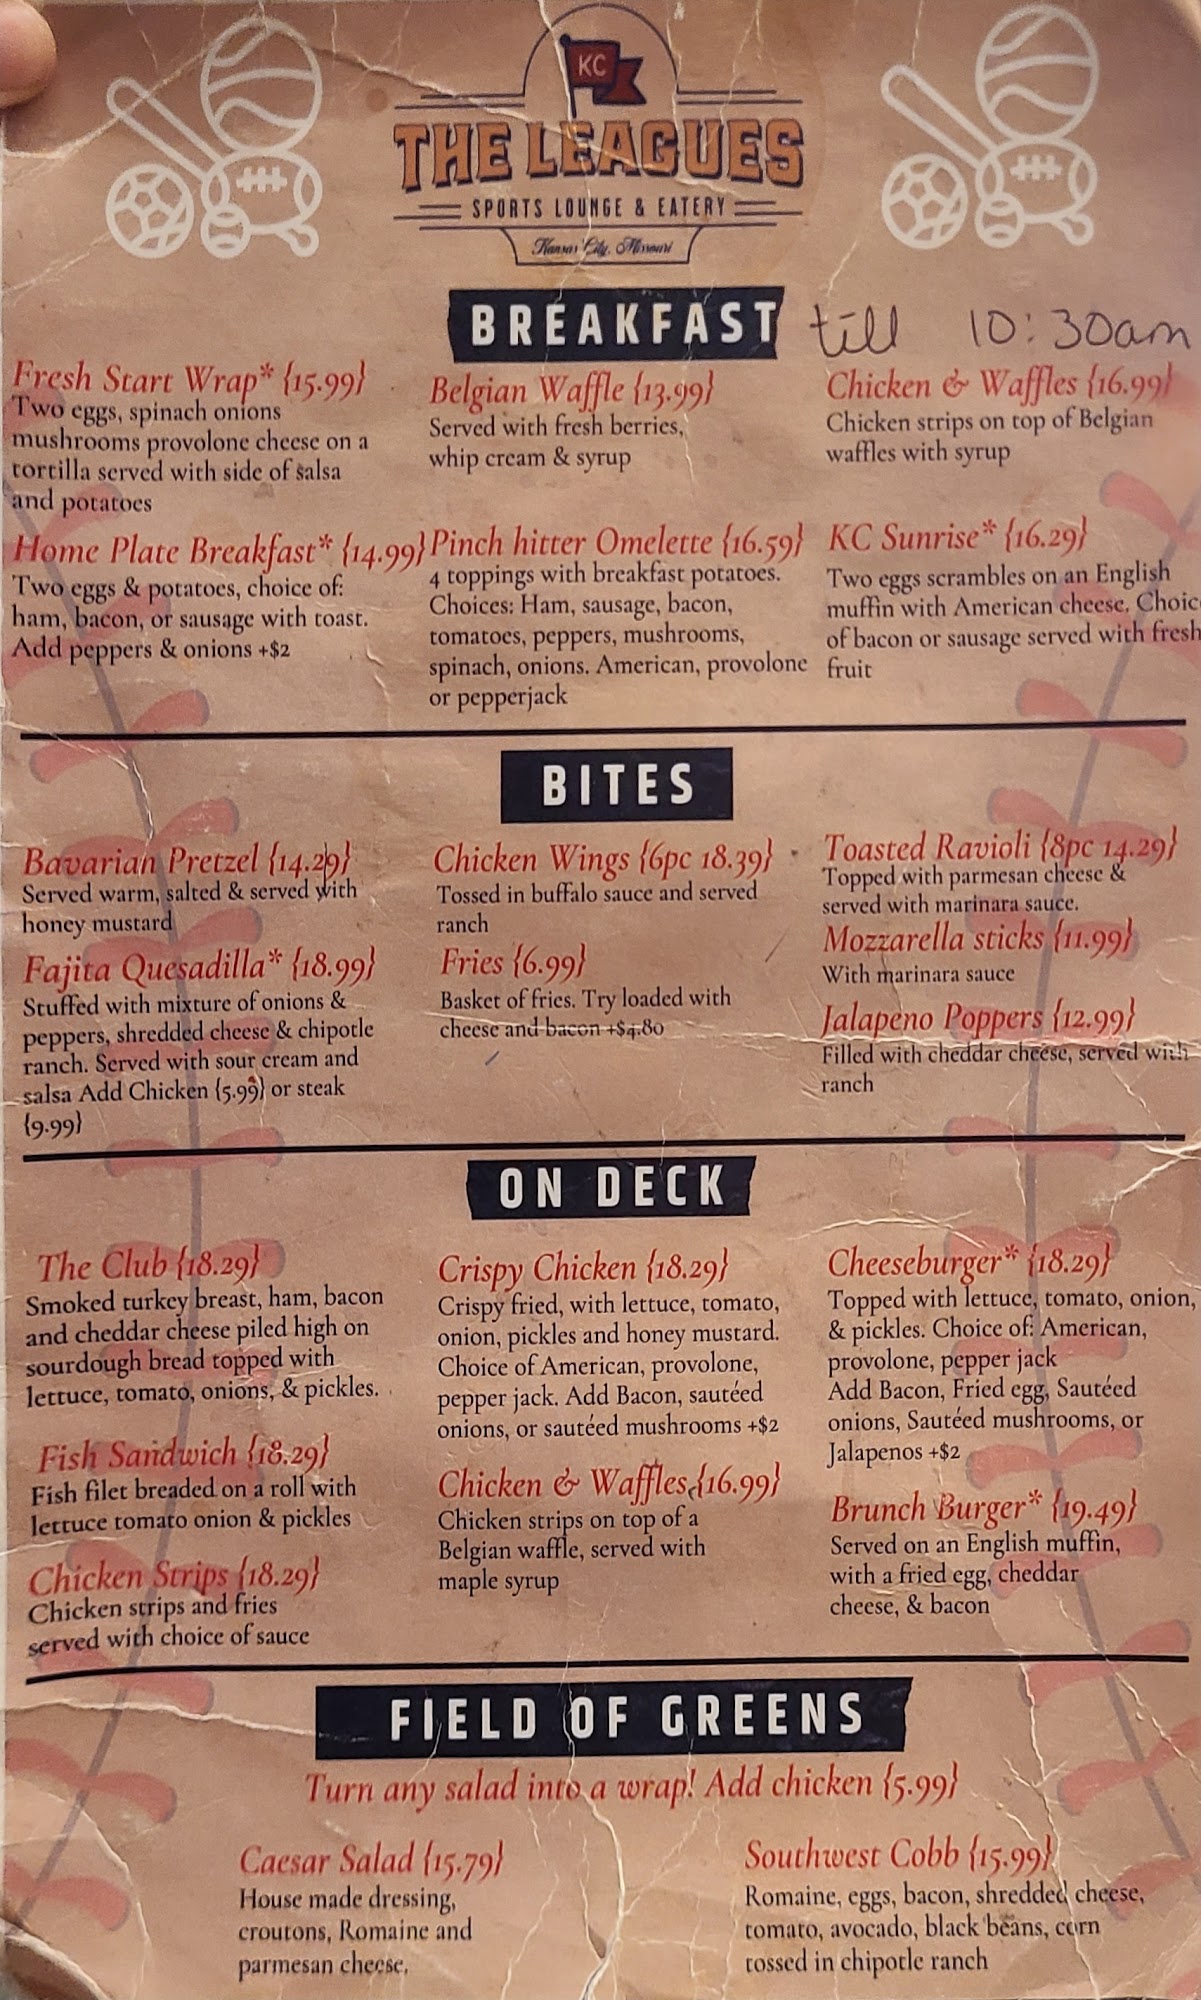 KC
THE LEAGUES
SPORTS LOUNGE & EATERY
Kansas City, Missouri
BREAKFAST till 10:30am
Fresh Start Wrap* {15.99}
Two eggs, spinach onions
mushrooms provolone cheese on a
tortilla served with side of salsa
and potatoes
Belgian Waffle {13.99}
Served with fresh berries,
whip cream & syrup
Chicken & Waffles {16.99}
Chicken strips on top of Belgian
waffles with syrup
Home Plate Breakfast* {14.99}
Two eggs & potatoes, choice of:
ham, bacon, or sausage with toast.
Add peppers & onions +$2
Pinch hitter Omelette {16.59}
4 toppings with breakfast potatoes.
Choices: Ham, sausage, bacon,
tomatoes, peppers, mushrooms,
spinach, onions. American, provolone
or pepperjack
KC Sunrise* {16.29}
Two eggs scrambles on an English
muffin with American cheese. Choic
of bacon or sausage served with fresh
fruit
BITES
Bavarian Pretzel {14.29}
Served warm, salted & served with
honey mustard
Fajita Quesadilla* {18.99}
Stuffed with mixture of onions &
peppers, shredded cheese & chipotle
ranch. Served with sour cream and
salsa Add Chicken {5.99} or steak
{9.99}
Chicken Wings {6pc 18.39}
Tossed in buffalo sauce and served
ranch
Fries {6.99}
Basket of fries. Try loaded with
cheese and bacon +$4.80
Toasted Ravioli {8pc 14.29}
Topped with parmesan cheese &
served with marinara sauce.
Mozzarella sticks {11.99}
With marinara sauce
Jalapeno Poppers {12.99}
Filled with cheddar cheese, served with
ranch
ON DECK
The Club {18.29}
Smoked turkey breast, ham, bacon
and cheddar cheese piled high on
sourdough bread topped with
lettuce, tomato, onions, & pickles.
Fish Sandwich {18.29}
Fish filet breaded on a roll with
lettuce tomato onion & pickles
Chicken Strips {18.29}
Chicken strips and fries
served with choice of sauce
Crispy Chicken {18.29}
Crispy fried, with lettuce, tomato,
onion, pickles and honey mustard.
Choice of American, provolone,
pepper jack. Add Bacon, sautéed
onions, or sautéed mushrooms +$2
Chicken & Waffles {16.99}
Chicken strips on top of a
Belgian waffle, served with
maple syrup
Cheeseburger* {18.29}
Topped with lettuce, tomato, onion,
& pickles. Choice of: American,
provolone, pepper jack
Add Bacon, Fried egg, Sautéed
onions, Sautéed mushrooms, or
Jalapenos +$2
Brunch Burger* {19.49}
Served on an English muffin,
with a fried egg, cheddar
cheese, & bacon
FIELD OF GREENS
Turn any salad into a wrap! Add chicken {5.99}
Caesar Salad {15.79}
House made dressing,
croutons, Romaine and
parmesan cheese.
Southwest Cobb {15.99}
Romaine, eggs, bacon, shredded cheese,
tomato, avocado, black beans, corn
tossed in chipotle ranch